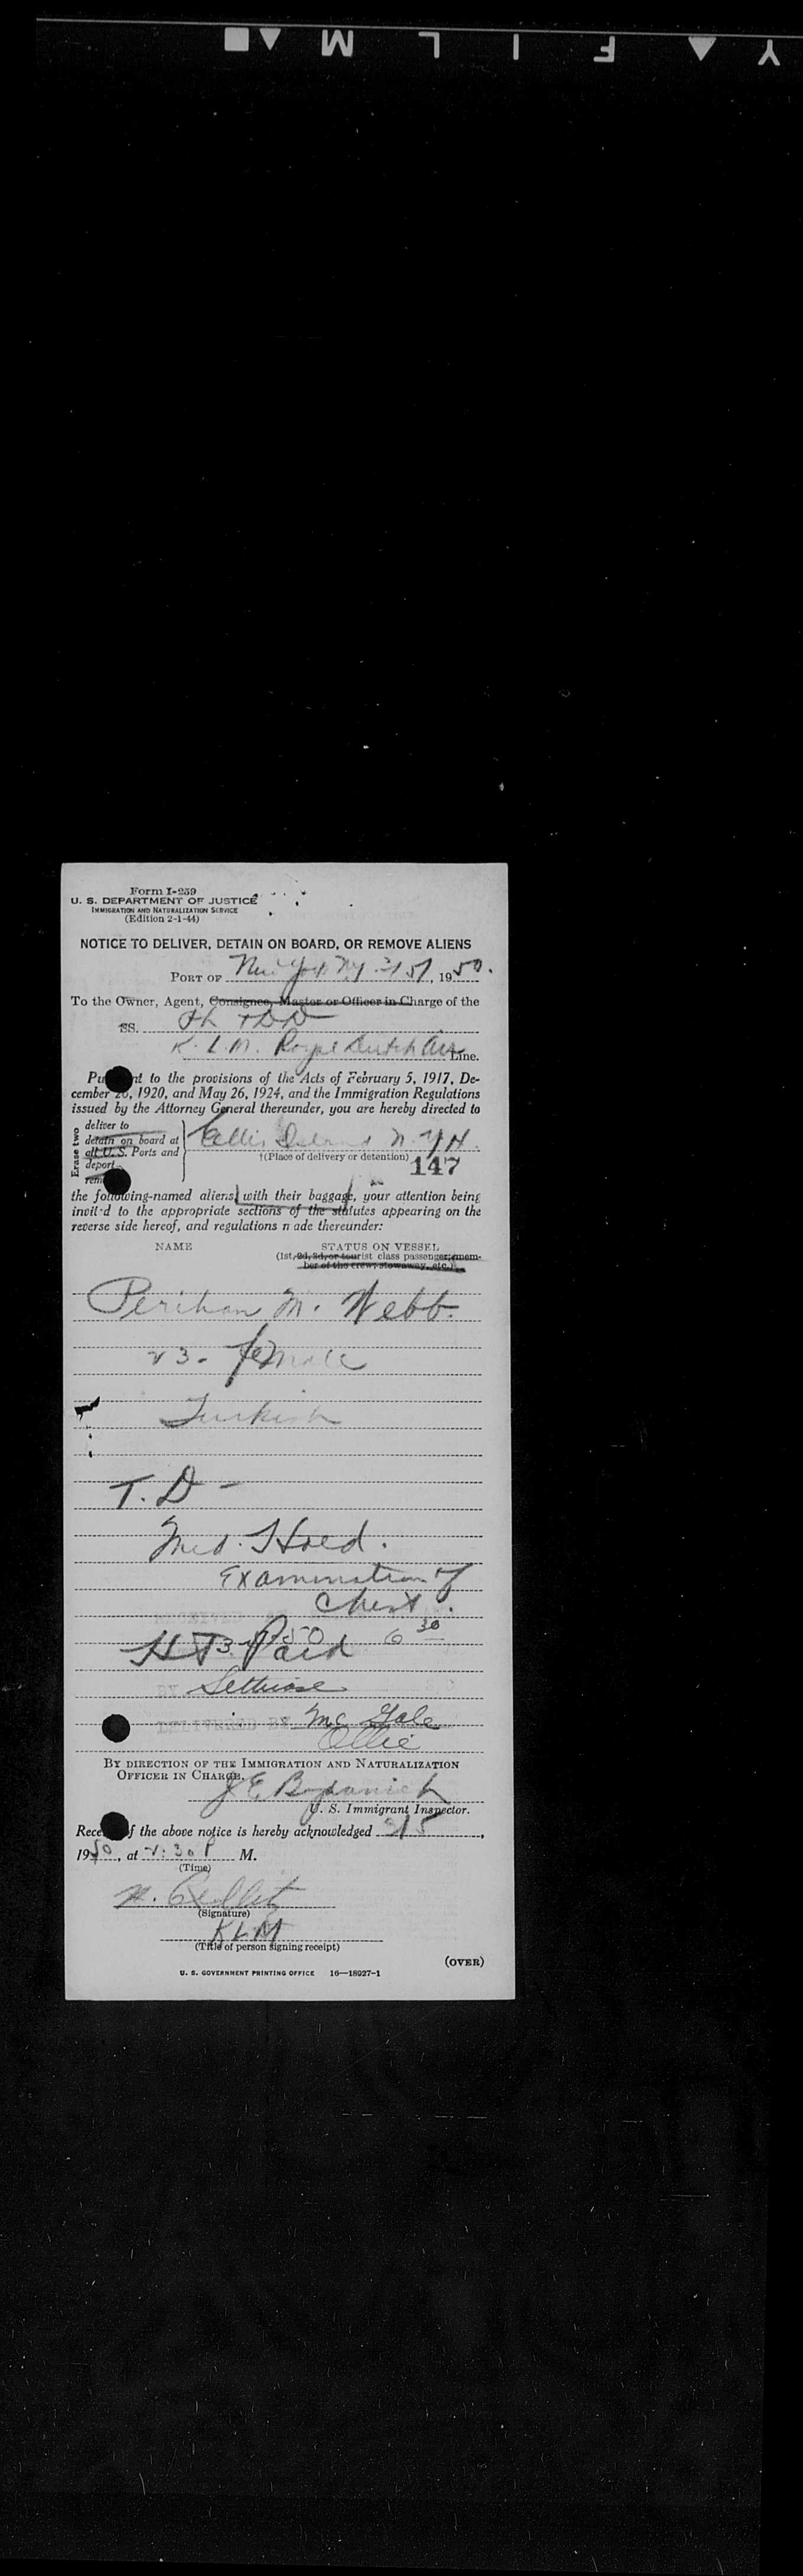 Y ▲ F I L M ▲ ■
Form I-259
U. S. DEPARTMENT OF JUSTICE
IMMIGRATION AND NATURALIZATION SERVICE
(Edition 2-1-44)
NOTICE TO DELIVER, DETAIN ON BOARD, OR REMOVE ALIENS
PORT OF New York NY 3/5/, 1950.
To the Owner, Agent, Consignee, Master or Officer in Charge of the
SS. PH TDD
K. L. M. Royal Dutch Air Line.
Pu nt to the provisions of the Acts of February 5, 1917, De-
cember 26, 1920, and May 26, 1924, and the Immigration Regulations
issued by the Attorney General thereunder, you are hereby directed to
Erase two
deliver to
detain on board at
all U. S. Ports and
deport
rem
Ellis Island N. Y. H.
†(Place of delivery or detention)
147
the following-named aliens, with their baggage, your attention being
invit d to the appropriate sections of the statutes appearing on the
reverse side hereof, and regulations n ade thereunder:
NAME STATUS ON VESSEL
(1st, 2d, 3d, or tourist class passenger; mem-
ber of the crew; stowaway, etc.)
Perihan M. Webb.
23 - female
Turkish
T. D -
Med. Hold.
Examination of
Chest.
HT Paid
6 30
BY
DELIVERED BY Mc Gale
Ollie
BY DIRECTION OF THE IMMIGRATION AND NATURALIZATION
OFFICER IN CHARGE.
J E
U. S. Immigrant Inspector.
Rece f the above notice is hereby acknowledged 3/5,
1950, at 2:30 P M.
(Time)
(Signature)
KLM
(Title of person signing receipt)
(OVER)
U. S. GOVERNMENT PRINTING OFFICE 16—18027-1